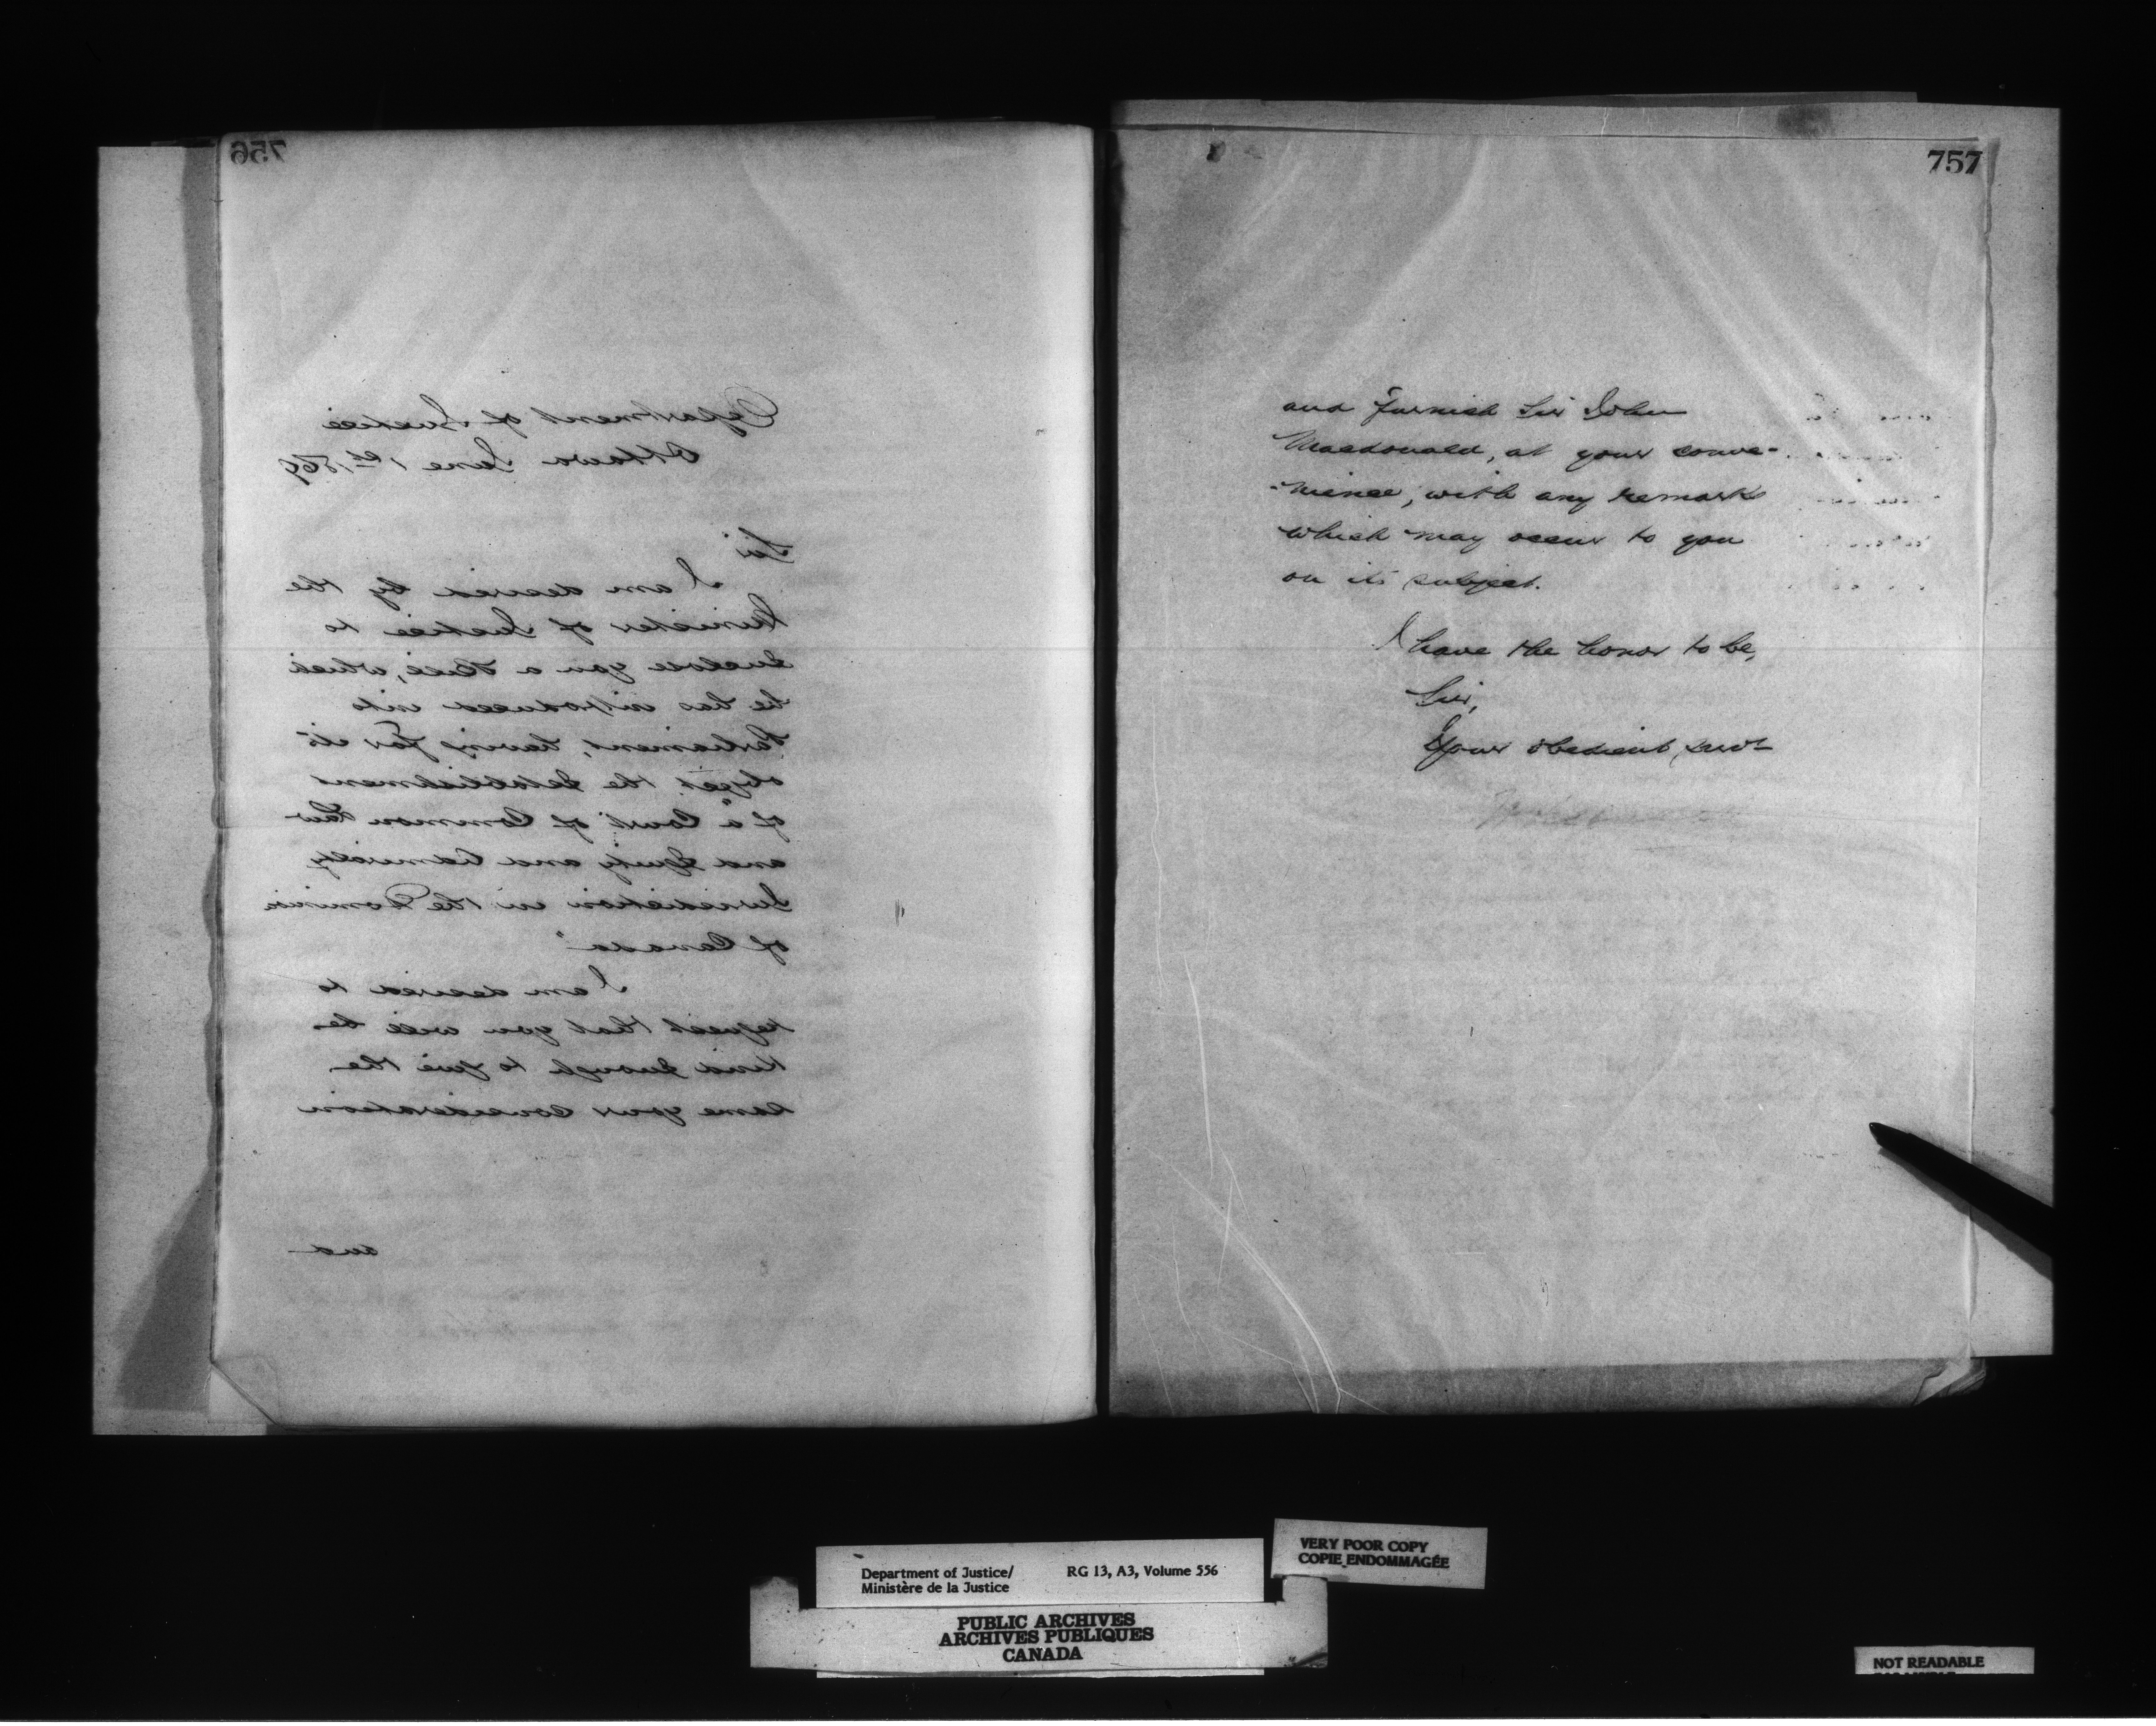 756
Department of Justice
Ottawa June 1st 1869
Sir
I am desired by the
Minister of Justice to
Enclose you a Bill, which
he has introduced into
Parliament, having for its
object the Establishment
of "a Court of Common Law
and Equity and Admiralty
Jurisdiction in the Dominion
of Canada"
I am desired to
request that you will be
kind Enough to give the
same your Consideration
and
757
and furnish Sir John
Macdonald, at your conve-
-nience, with any remarks
which may occur to you
on its subject.
I have the honor to be,
Sir,
Your obedient, servt
Department of Justice/
Ministère de la Justice
RG 13, A3, Volume 556
VERY POOR COPY
COPIE ENDOMMAGÉE
PUBLIC ARCHIVES
ARCHIVES PUBLIQUES
CANADA
NOT READABLE